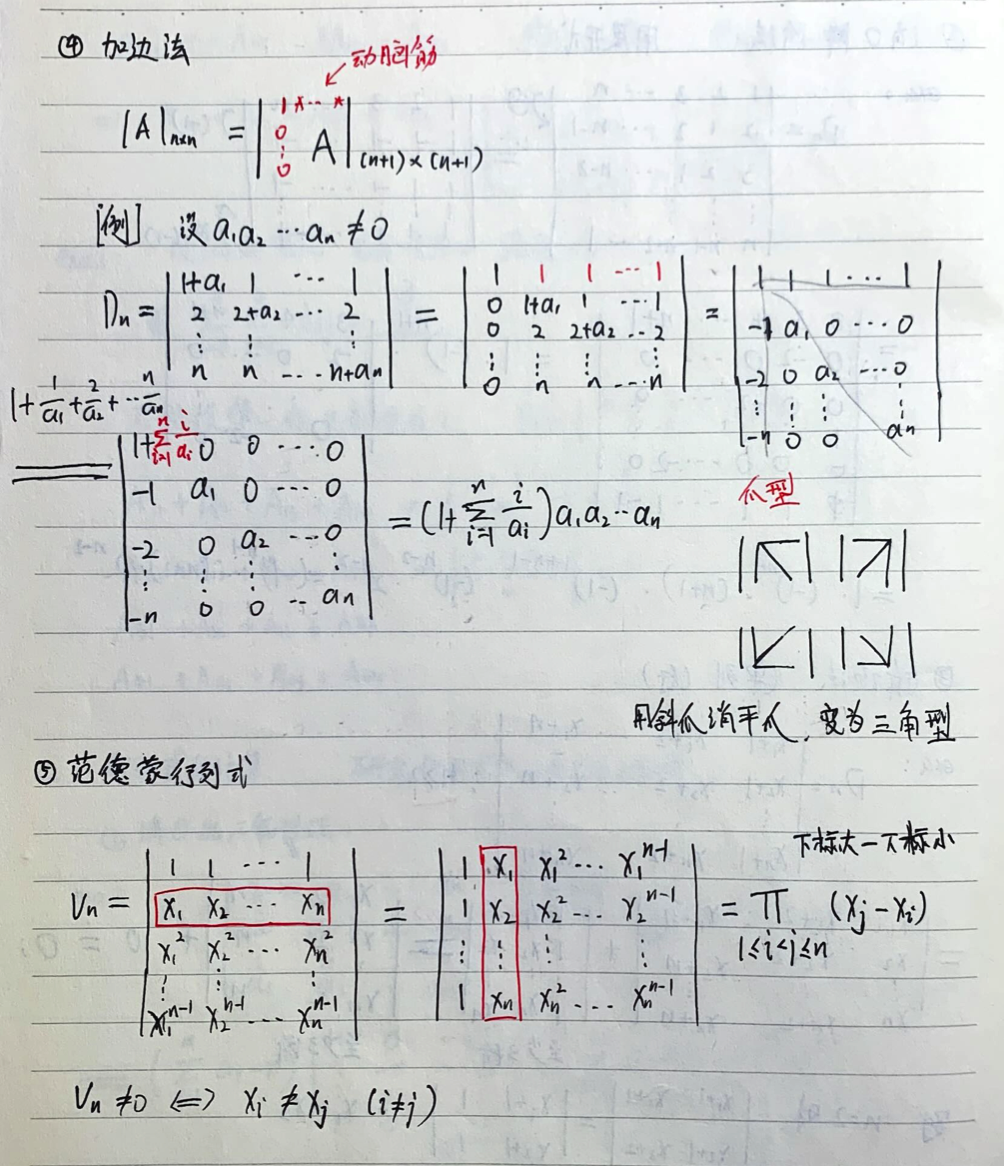 ④ 加边法
动脑筋
|A|n×n = | 1 * ··· * ; 0 ⋮ 0 A |(n+1)×(n+1)
[例] 设 a₁a₂ ··· aₙ ≠ 0
Dₙ = | 1+a₁ 1 ··· 1 ; 2 2+a₂ ··· 2 ; ⋮ ⋮ ⋮ ; n n ··· n+aₙ | = | 1 1 1 ··· 1 ; 0 1+a₁ 1 ··· 1 ; 0 2 2+a₂ ·· 2 ; ⋮ ⋮ ⋮ ⋮ ; 0 n n ··· n | = | 1 1 1 ··· 1 ; -1 a₁ 0 ··· 0 ; -2 0 a₂ ··· 0 ; ⋮ ⋮ ⋮ ⋮ ; -n 0 0 aₙ |
1+1/a₁+2/a₂+··n/aₙ
= | 1+∑ᵢ₌₁ⁿ i/aᵢ 0 0 ··· 0 ; -1 a₁ 0 ··· 0 ; -2 0 a₂ ··· 0 ; ⋮ ⋮ ⋮ ⋮ ; -n 0 0 ·· aₙ | = (1+∑ᵢ₌₁ⁿ i/aᵢ) a₁a₂ ·· aₙ
爪型
用斜爪消平爪, 变为三角型
⑤ 范德蒙行列式
下标大-下标小
Vₙ = | 1 1 ··· 1 ; x₁ x₂ ··· xₙ ; x₁² x₂² ··· xₙ² ; ⋮ ⋮ ⋮ ; x₁ⁿ⁻¹ x₂ⁿ⁻¹ ··· xₙⁿ⁻¹ | = | 1 x₁ x₁² ··· x₁ⁿ⁻¹ ; 1 x₂ x₂² ··· x₂ⁿ⁻¹ ; ⋮ ⋮ ⋮ ⋮ ; 1 xₙ xₙ² ···· xₙⁿ⁻¹ | = ∏ (xⱼ - xᵢ)
1≤i<j≤n
Vₙ ≠ 0 ⟺ xᵢ ≠ xⱼ (i≠j)